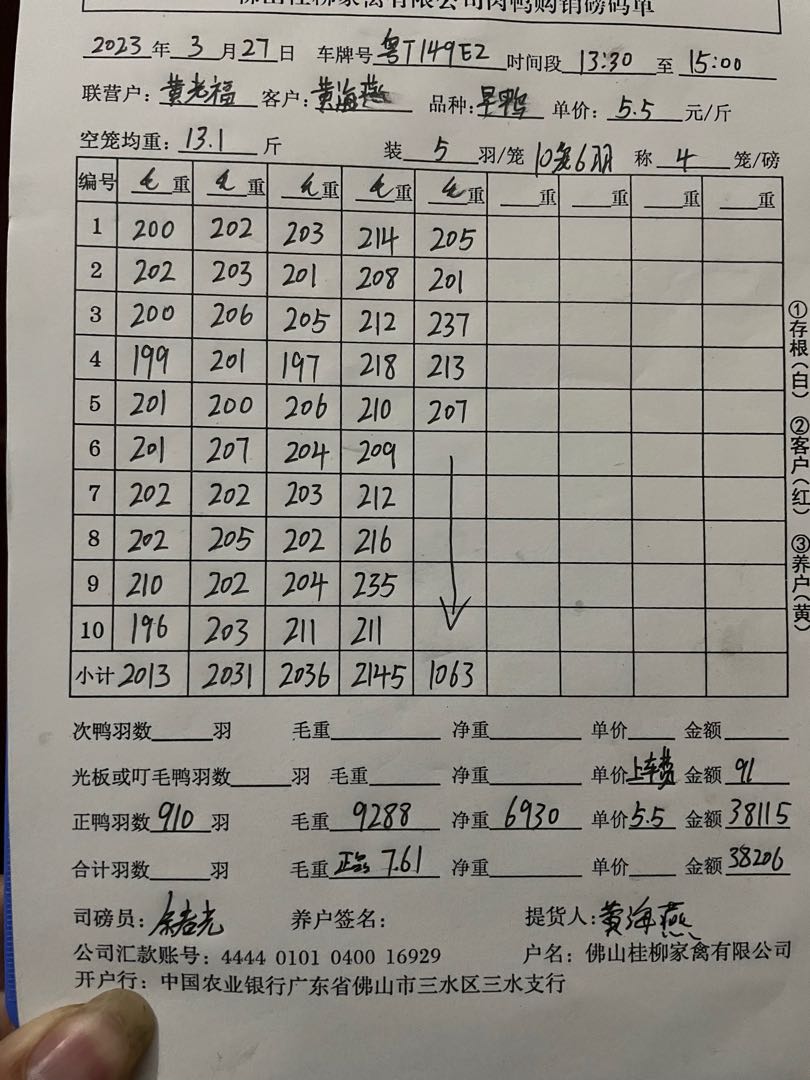 佛山桂柳家禽有限公司肉鸭购销磅码单
2023年3月27日 车牌号粤T149E2 时间段13:30至15:00
联营户:黄老福 客户:黄海燕 品种:旱鸭 单价:5.5元/斤
空笼均重:13.1斤 装5羽/笼 10笼6羽 称4笼/磅
编号 毛重 毛重 毛重 毛重 毛重 重 重 重 重
1 200 202 203 214 205
2 202 203 201 208 201
3 200 206 205 212 237
4 199 201 197 218 213
5 201 200 206 210 207
6 201 207 204 209
7 202 202 203 212
8 202 205 202 216
9 210 202 204 235
10 196 203 211 211
小计 2013 2031 2036 2145 1063
次鸭羽数 羽 毛重 净重 单价 金额
光板或叮毛鸭羽数 羽 毛重 净重 单价上车费 金额91
正鸭羽数910羽 毛重9288 净重6930 单价5.5 金额38115
合计羽数 羽 毛重 7.61 净重 单价 金额38206
司磅员: 养户签名: 提货人:黄海燕
公司汇款账号:4444 0101 0400 16929 户名:佛山桂柳家禽有限公司
开户行:中国农业银行广东省佛山市三水区三水支行
①存根(白) ②客户(红) ③养户(黄)